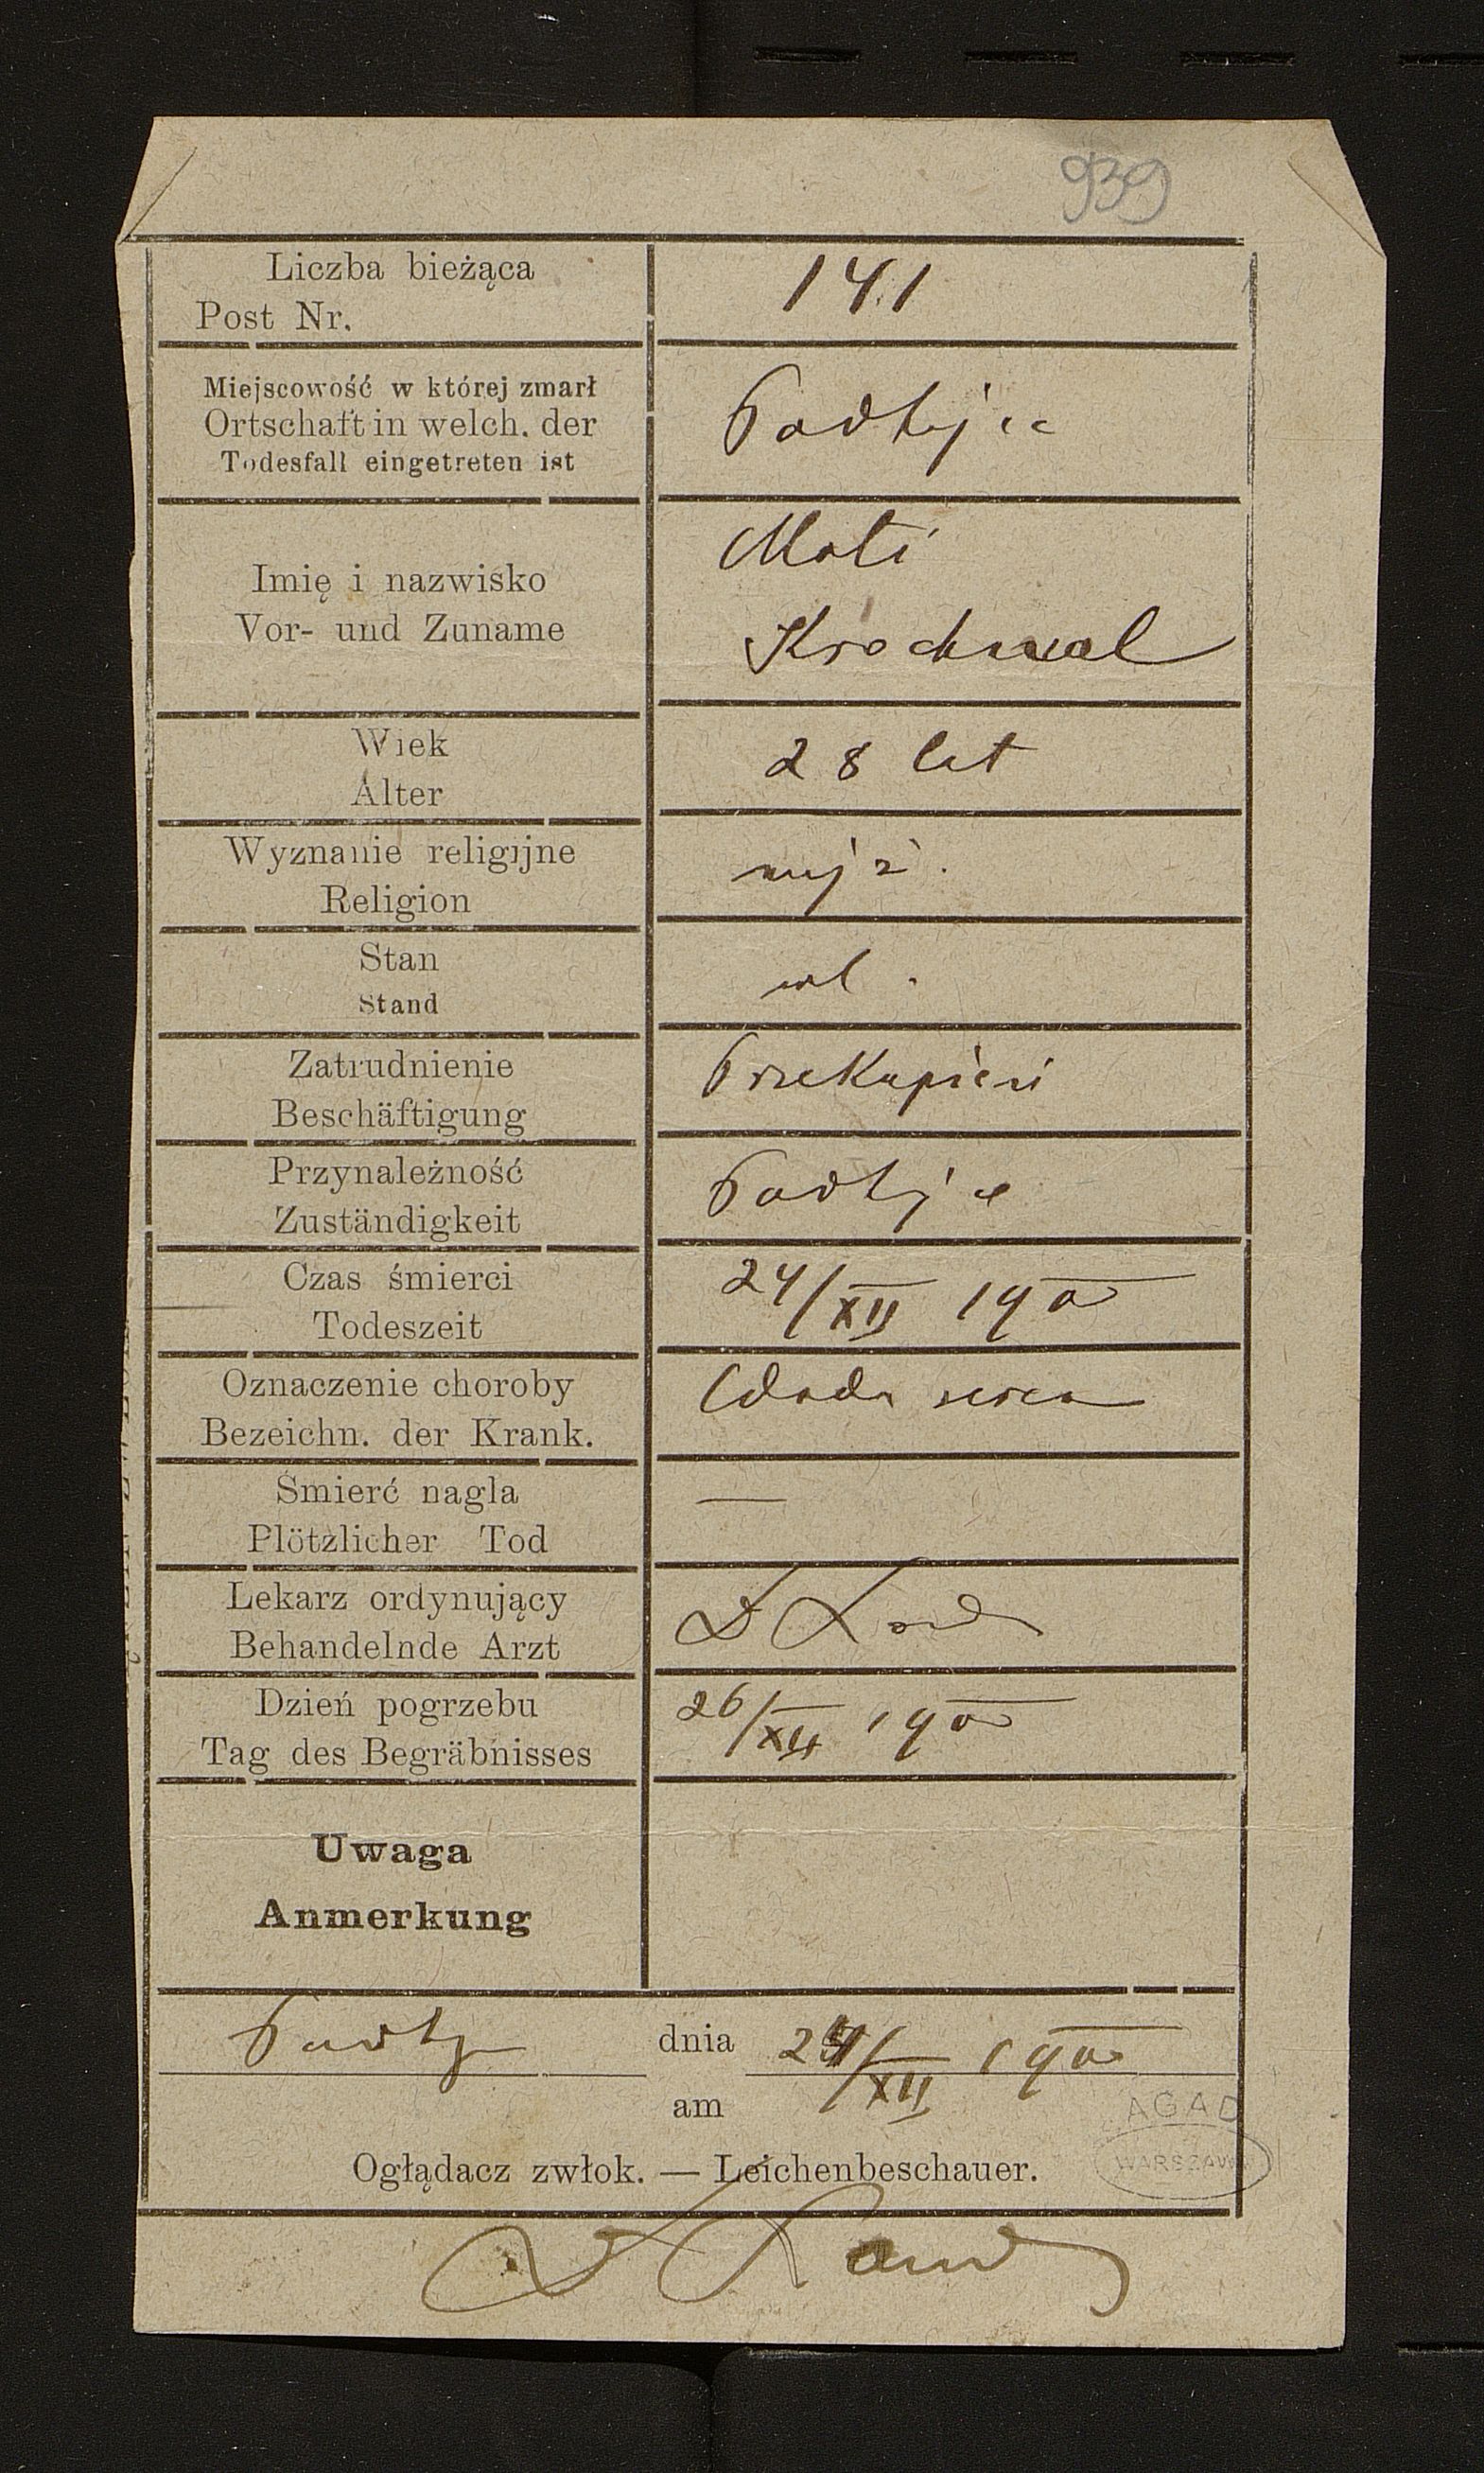 939
Liczba bieżąca
Post Nr.
141
Miejscowość w której zmarł
Ortschaft in welch. der
Todesfall eingetreten ist
Podhajce
Moti
Krochmal
Imię i nazwisko
Vor- und Zuname
Wiek
Alter
28 lat
Wyznanie religijne
Religion
mojż.
Stan
Stand
wol.
Zatrudnienie
Beschäftigung
Przekupień
Przynależność
Zuständigkeit
Podhajce
Czas śmierci
Todeszeit
24/XII 1900
Oznaczenie choroby
Bezeichn. der Krank.
Wada serca
Śmierć nagla
Plötzlicher Tod
—
Lekarz ordynujący
Behandelnde Arzt
Dzień pogrzebu
Tag des Begräbnisses
26/XII 1900
Uwaga
Anmerkung
dnia /XII 1900
am
Oglądacz zwłok. — Leichenbeschauer.
AGAD
WARSZAWA